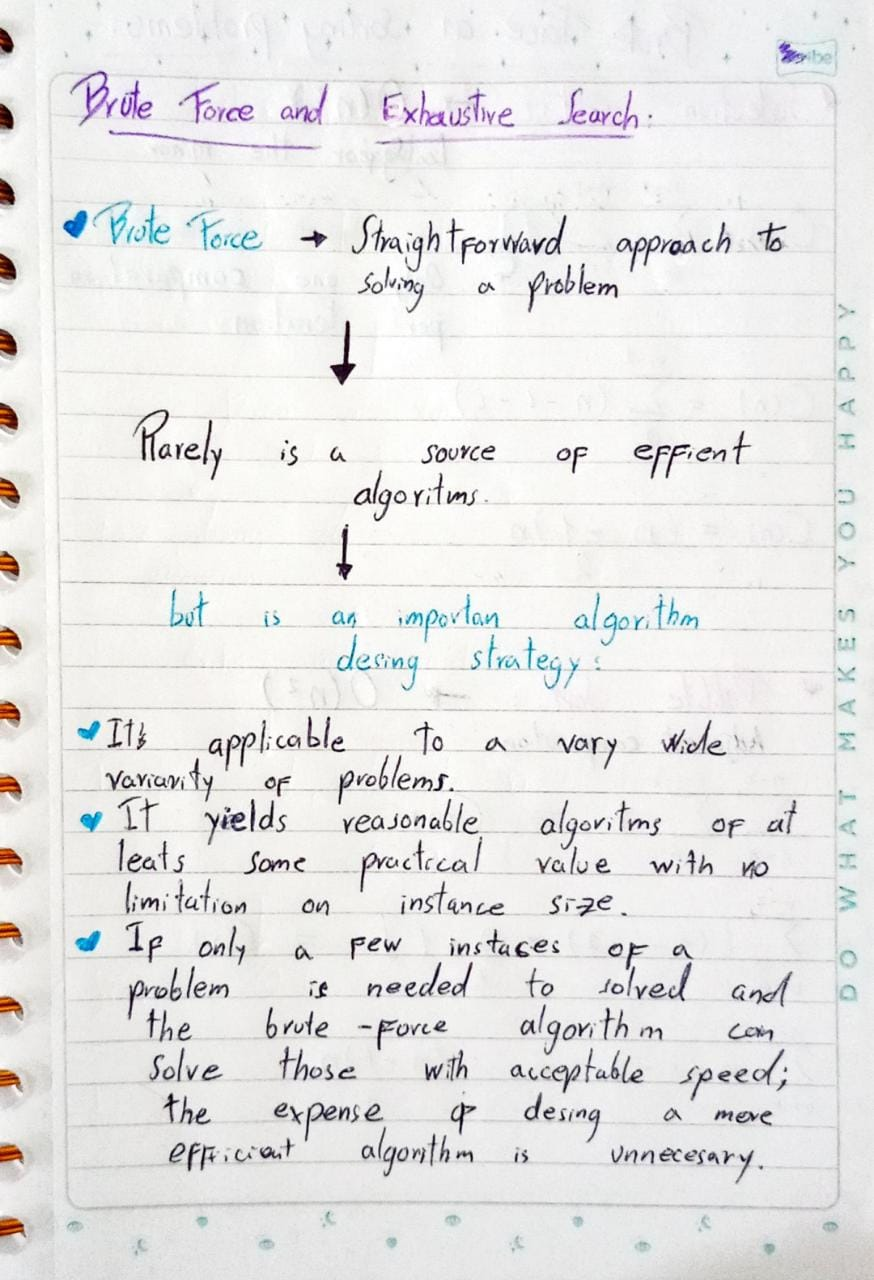 Brute Force and Exhaustive Search:
Brute Force → Straightforward approach to
solving a problem
Rarely is a source of effient
algoritms.
but is an importan algorithm
desing strategy:
It's applicable to a vary wide
variarity of problems.
It yields reasonable algoritms of at
leats some practical value with no
limitation on instance size.
If only a few instaces of a
problem is needed to solved and
the brute-force algorithm can
solve those with acceptable speed;
the expense of desing a more
efficient algorithm is unnecesary.
DO WHAT MAKES YOU HAPPY